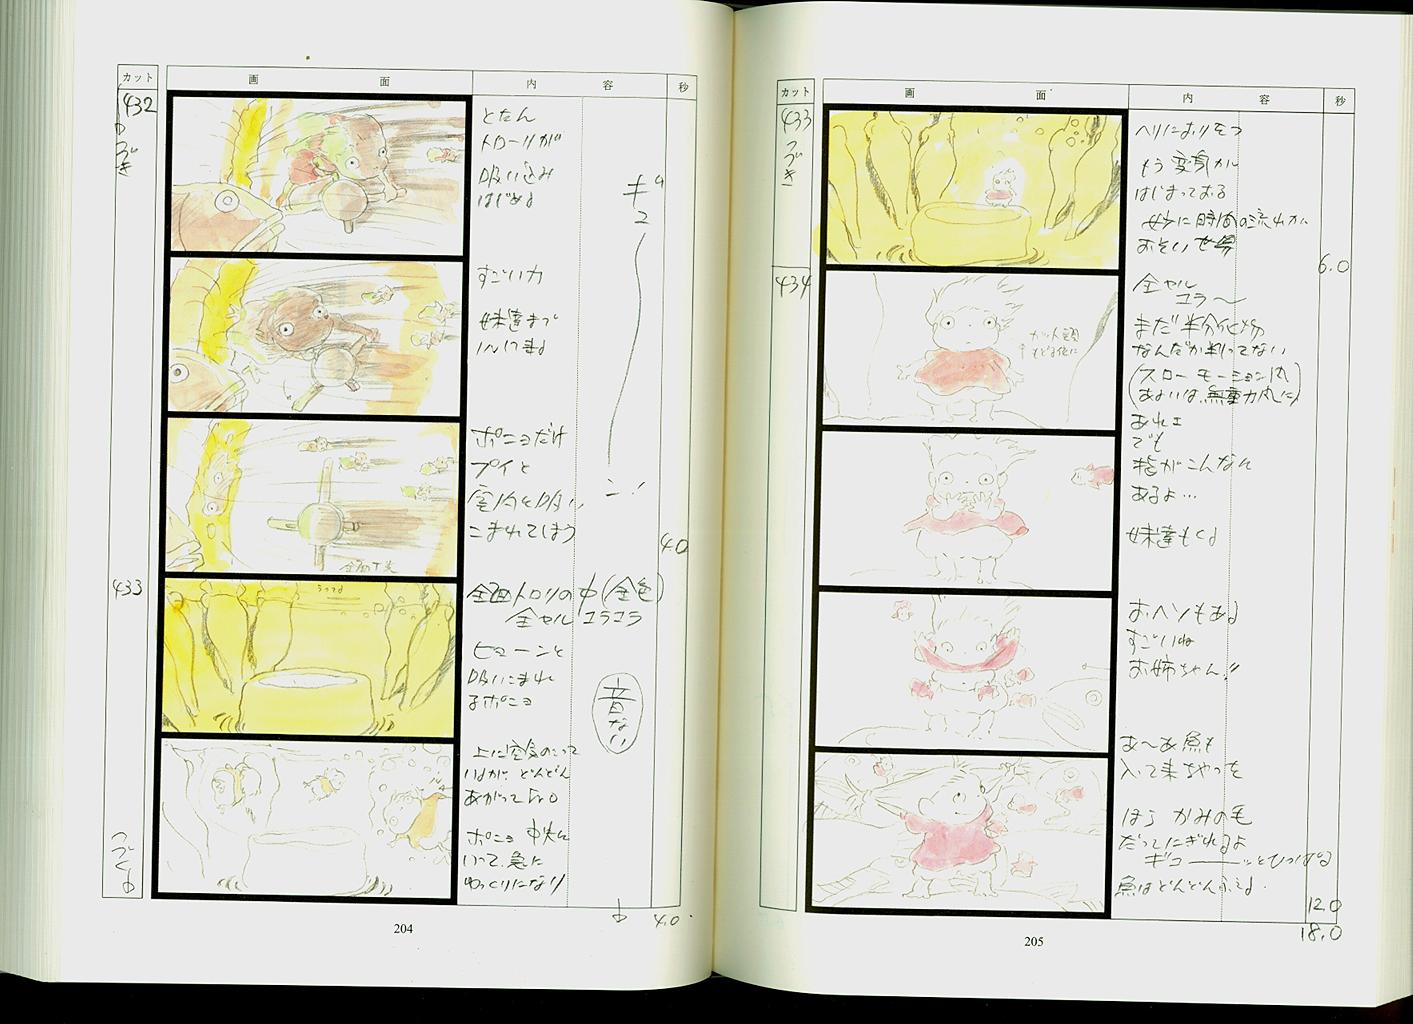 カット 画面 内容 秒
432
つづき
とたん
トローリが
吸い込み
はじめる
ギューン!
すごい力
妹達まで
ポニョだけ
プイと
室内に吸い
こまれてしまう
4.0
433
全面トロリの中(金色)
全セル ユラユラ
ヒューンと
吸いこまれ
るポニョ
音なし
上に空気のこって
いるが、どんどん
あがって
ポニョ 中央に
いって、急に
ゆっくりになり
つづく
4.0
204
カット 画面 内容 秒
433
つづき
ヘリにおり立つ
もう変身が
はじまっておる
妙に時間の流れが
おそい世界
6.0
434
全セル
ユラ〜
まだ半分化物
なんだか判ってない
(スローモーション風
あるいは、無重力風に)
あれェ
でも
指がこんなに
あるよ…
妹達もくる
おヘソもある
すごいね
お姉ちゃん!!
あ〜あ魚も
入って来ちゃった
ほら かみの毛
だってにぎれるよ
ギューーッとひっぱる
魚はどんどんふえる.
12.0
18.0
205